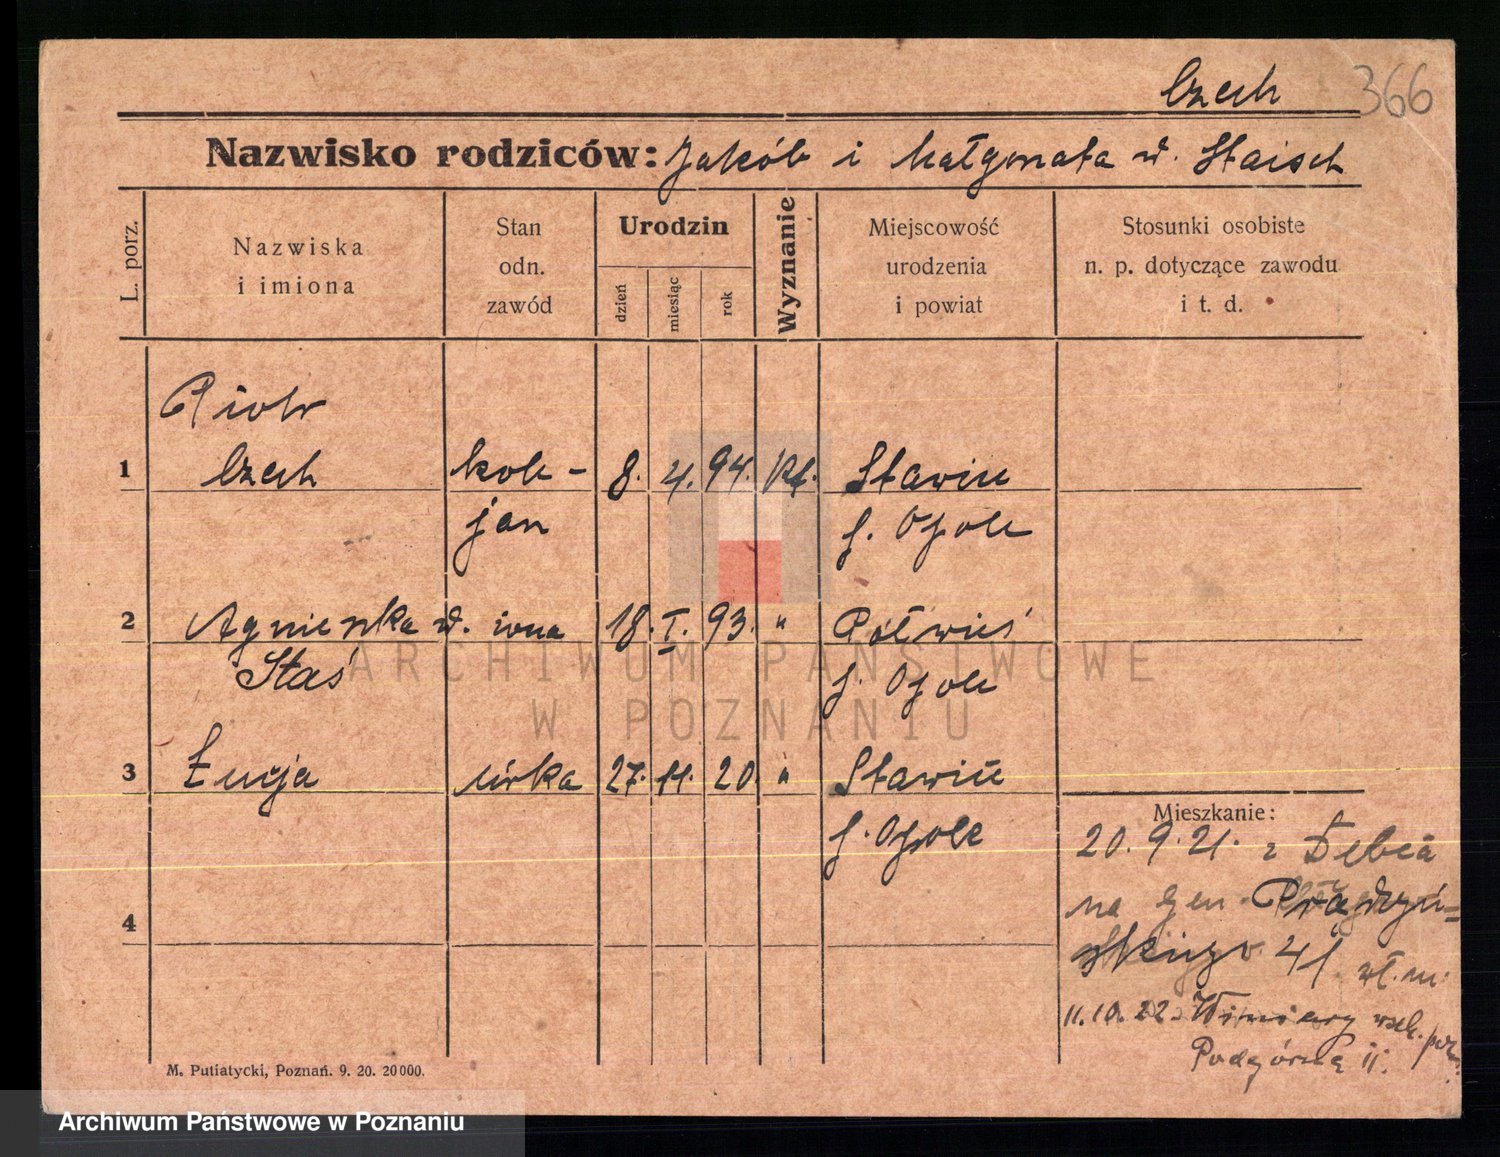 Czech 366
Nazwisko rodziców: Jakób i Małgorzata d. Staisch
L. porz.
Nazwiska
i imiona
Stan
odn.
zawód
Urodzin
dzień
miesiąc
rok
Wyznanie
Miejscowość
urodzenia
i powiat
Stosunki osobiste
n. p. dotyczące zawodu
i t. d.
Piotr
1 Czech kole- 8. 4. 94. Kt. Stawice
jan p. Opole
2 Agnieszka d. żona 18. I. 93. " Półwieś
Staś p. Opole
3 Łucja córka 27. 11. 20 " Stawice
p. Opole
4
Mieszkanie:
20. 9. 21. z Dębca
na gen. Prądzyń=
skiego 41
11.10.22. Winiary
Podgórna 11.
M. Putiatycki, Poznań. 9. 20. 20000.
ARCHIWUM PAŃSTWOWE
W POZNANIU
Archiwum Państwowe w Poznaniu